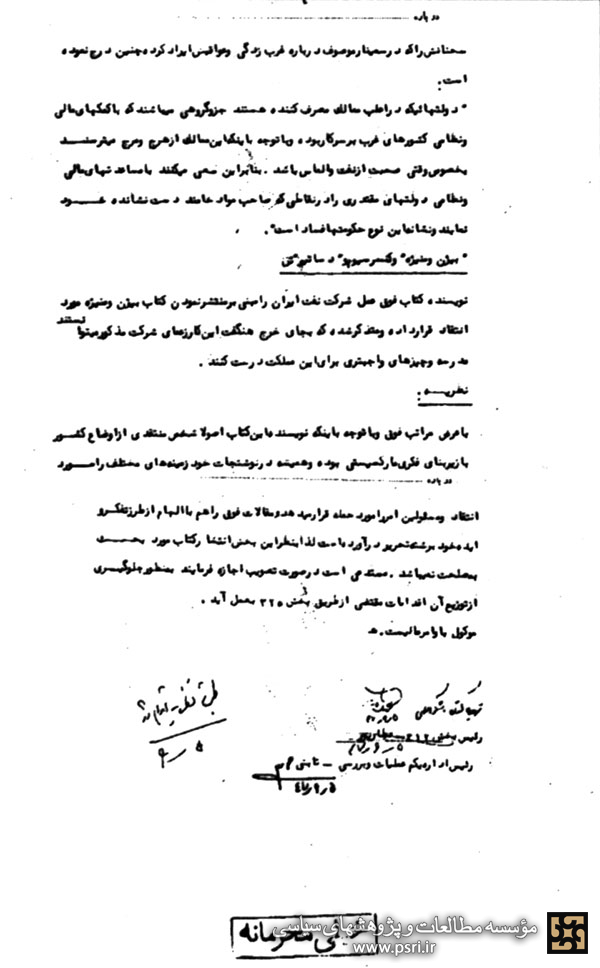 درباره
سخنانش را که در سمینار موصوف درباره غرب زدگی وعواقبش ایراد کرده چنین درج نموده
است:
" دولتهائیکه در اغلب ممالک مصرف کننده هستند جزو گروهی میباشند که با کمکهای مالی
ونظامی کشورهای غرب بر سر کار بوده وبا توجه باینکه این ممالک از هرج ومرج میترسند
بخصوص وقتی صحبت از نفت والماس باشد . بنابراین سعی میکنند با مساعدتهای مالی
ونظامی دولتهای مقتدری را در نقاطی که صاحب مواد خامند دست نشانده خود
نمایند ونشانه این نوع حکومتها فساد است".
" بیژن ومنیژه" وکنسرسیوم"
نویسنده کتاب فوق عمل شرکت نفت ایران را مبنی بر منتشر نمودن کتاب بیژن ومنیژه مورد
انتقاد قرار داده ومتذکر شده که بجای خرج هنگفت این کار زعمای شرکت مذکور میتوانستند
مدرسه وچیزهای واجبتری برای این مملکت درست کنند .
نظریه :
با عرض مراتب فوق وبا توجه باینکه نویسنده این کتاب اصولا شخص منتقدی از اوضاع کشور
با زیربنای فکری مارکسیستی بوده وهمیشه در نوشتجات خود زمینه های مختلف را مورد
درباره
انتقاد ومسئولین امور را مورد حمله قرار میدهد ومقالات فوق را هم با الهام از طرز تفکر و
ایده خود برشته تحریر درآورده است لذا بنظر این بخش انتشار کتاب مورد بحث
بمصلحت نمیباشد . مستدعی است در صورت تصویب اجازه فرمایند بمنظور جلوگیری
از توزیع آن اقدامات مقتضی از طریق بخش ۳۲۵ بعمل آید .
موکول باوامر عالیست. ه
رئیس بخش ۳۱۲
رئیس اداره یکم عملیات وبررسی - ثابتی
خیلی محرمانه
مؤسسه مطالعات و پژوهشهای سیاسی
www.psri.ir